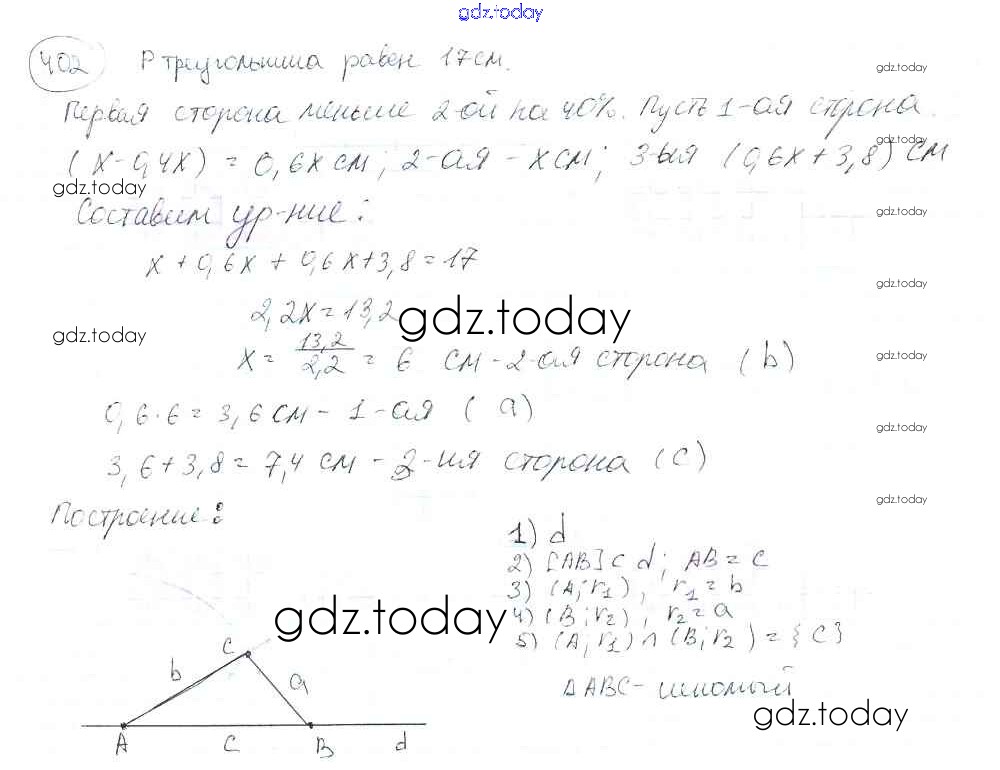 gdz.today
402 P треугольника равен 17см.
gdz.today
Первая сторона меньше 2-ой на 40%. Пусть 1-ая строна
gdz.today
(x-0,4x) = 0,6x см; 2-ая - x см; 3-ья (0,6x+3,8) см
gdz.today
Составим ур-ние:
gdz.today
x + 0,6x + 0,6x+3,8=17
gdz.today
2,2x=13,2
gdz.today
gdz.today
x = 13,2 / 2,2 = 6 см - 2-ая сторона (b)
gdz.today
0,6·6=3,6 см - 1-ая (a)
gdz.today
3,6+3,8=7,4 см - 3-ия сторона (c)
gdz.today
Построение:
1) d
2) [AB] ⊂ d; AB = c
3) (A; r₁), r₁ = b
gdz.today
4) (B; r₂), r₂ = a
5) (A; r₁) ∩ (B; r₂) = {C}
C
b
a
Δ ABC - искомый
gdz.today
A
C
B
d